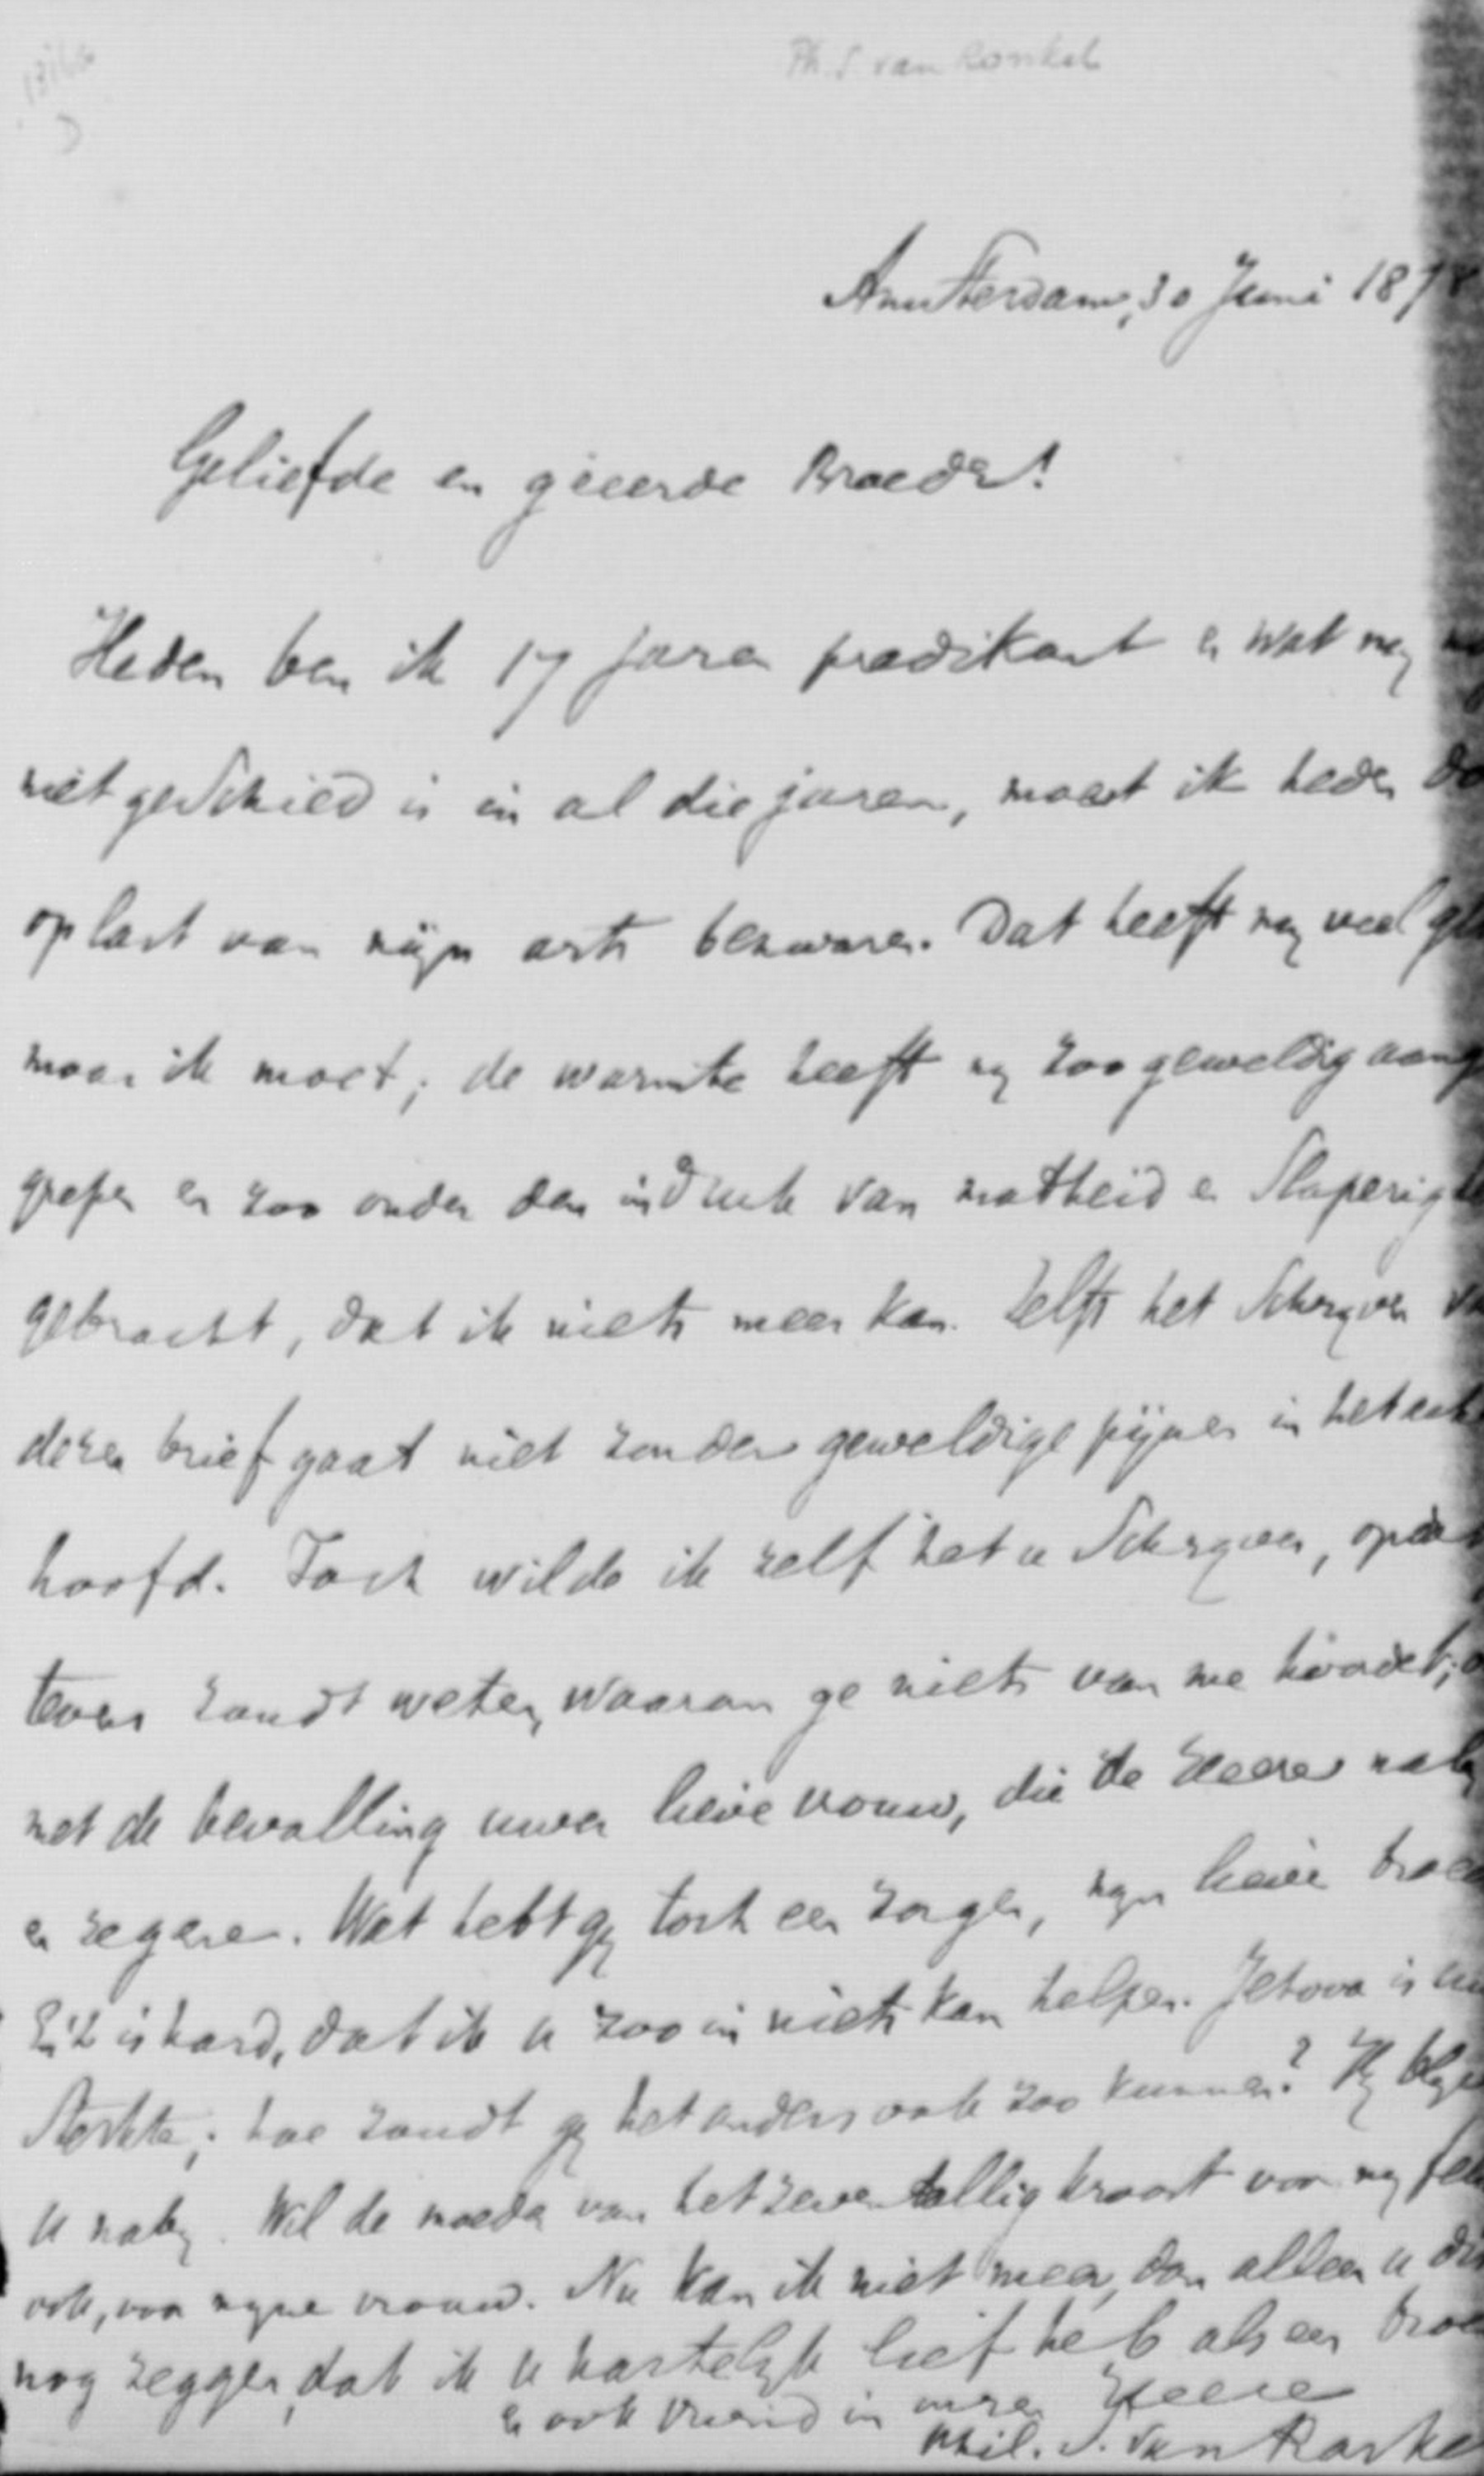 Ph. S. van Ronkel
Amsterdam, 30 Juni 187
Geliefde en geëerde Broeder!
Heden ben ik 17 jaren predikant en wat mij
niet geschied is in al die jaren, moet ik heden
op last van mijn arts bewaren. Dat heeft mij veel
maar ik moet; de warmte heeft mij zoo geweldig aange
grepen en zoo onder den indruk van matheid en slaperig
gebracht, dat ik niets meer kan. Zelfs het schrijven
dezen brief gaat niet zonder geweldige pijnen in het
hoofd. Toch wilde ik zelf het u schrijven, opdat
tevens zoudt weten, waarom ge niets van me hoordet;
met de bevalling uwer lieve vrouw, die de Heere nabij
en zegene. Wat hebt gij toch een zorgen, mijn lieve broe
is hard, dat ik u zoo in niets kan helpen. Jehova is uw
sterkte; hoe zoudt gij het anders ook zoo kunnen? Hij blijve
u nabij. Wil de moeder van het zevental kroost voor mij
ook, voor mijne vrouw. Nu kan ik niet meer, dan alleen u dit
nog zeggen, dat ik u hartelijk lief heb als een broe
en ook vriend in onzen Heere
Phil. S. van Ronkel